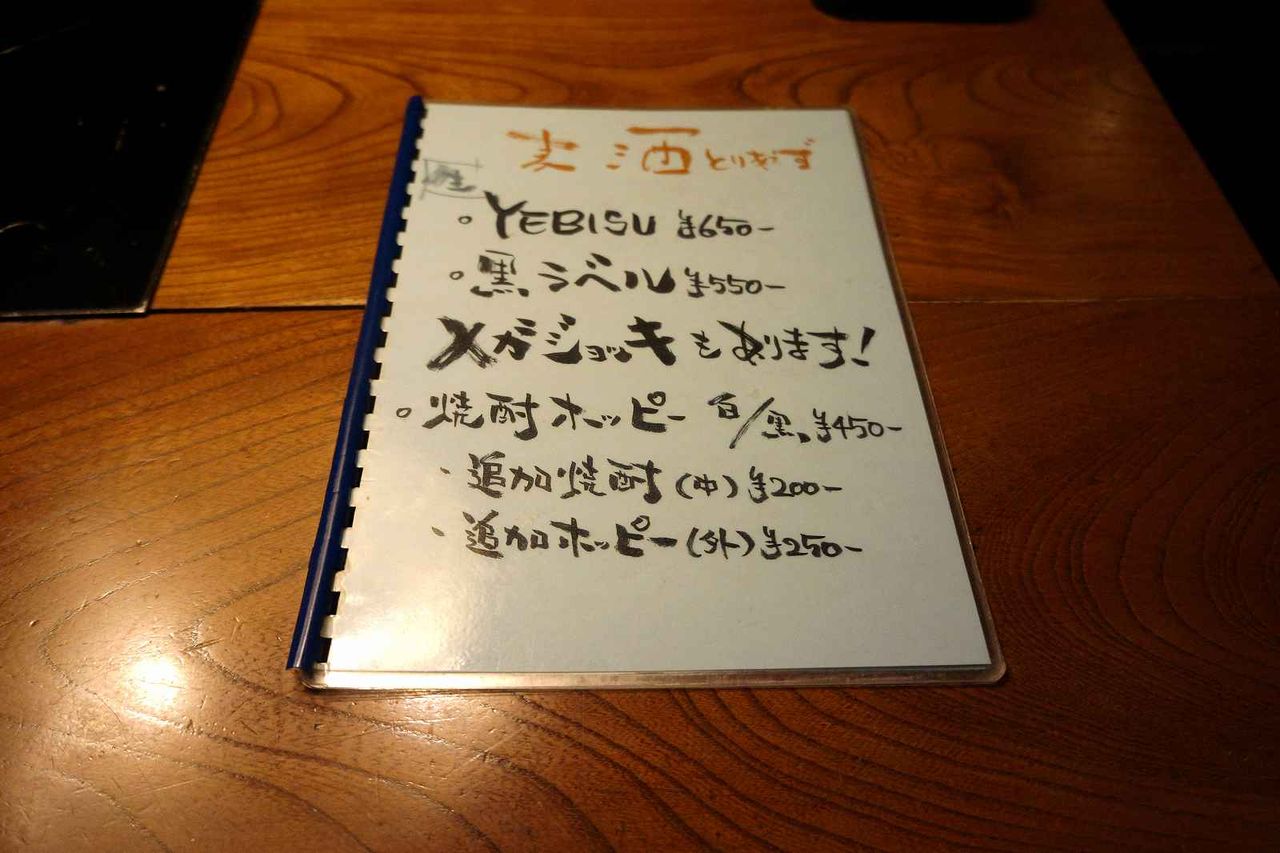 麦酒とりあえず
生
・YEBISU ¥650-
・黒ラベル ¥550-
メガジョッキもあります!
・焼酎ホッピー 白/黒 ¥450-
・追加焼酎(中)¥200-
・追加ホッピー(外)¥250-